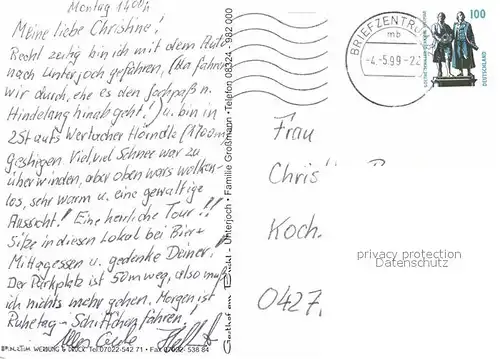 Montag 1400h
Meine liebe Christine!
Recht zeitig bin ich mit dem Auto
nach Unterjoch gefahren, (da fahren
wir durch, ehe es den Jochpaß n.
Hindelang hinab geht!) u. bin in
2 St aufs Wertacher Hörndle (1700m)
gestiegen. Viel, viel Schnee war zu
überwinden, aber oben wars wolken-
los, sehr warm u. eine gewaltige
Aussicht! Eine herrliche Tour!!
Sitze in diesen Lokal bei Bier +
Mittagessen u. gedenke Deiner!
Der Parkplatz ist 50m weg, also muß
ich nichts mehr gehen. Morgen ist
Ruhetag - Schiffchen fahren!
Alles Gute
WERBUNG & DRUCK Tel. 07022-542 71 • Fax 07022- 538 84
Gasthof am Buchl • Unterjoch • Familie Großmann • Telefon 08324 - 982 000
BRIEFZENTRUM
mb
-4.-5.99-2
100
DEUTSCHLAND
Frau
Chris
Koch.
0427.
privacy protection
Datenschutz